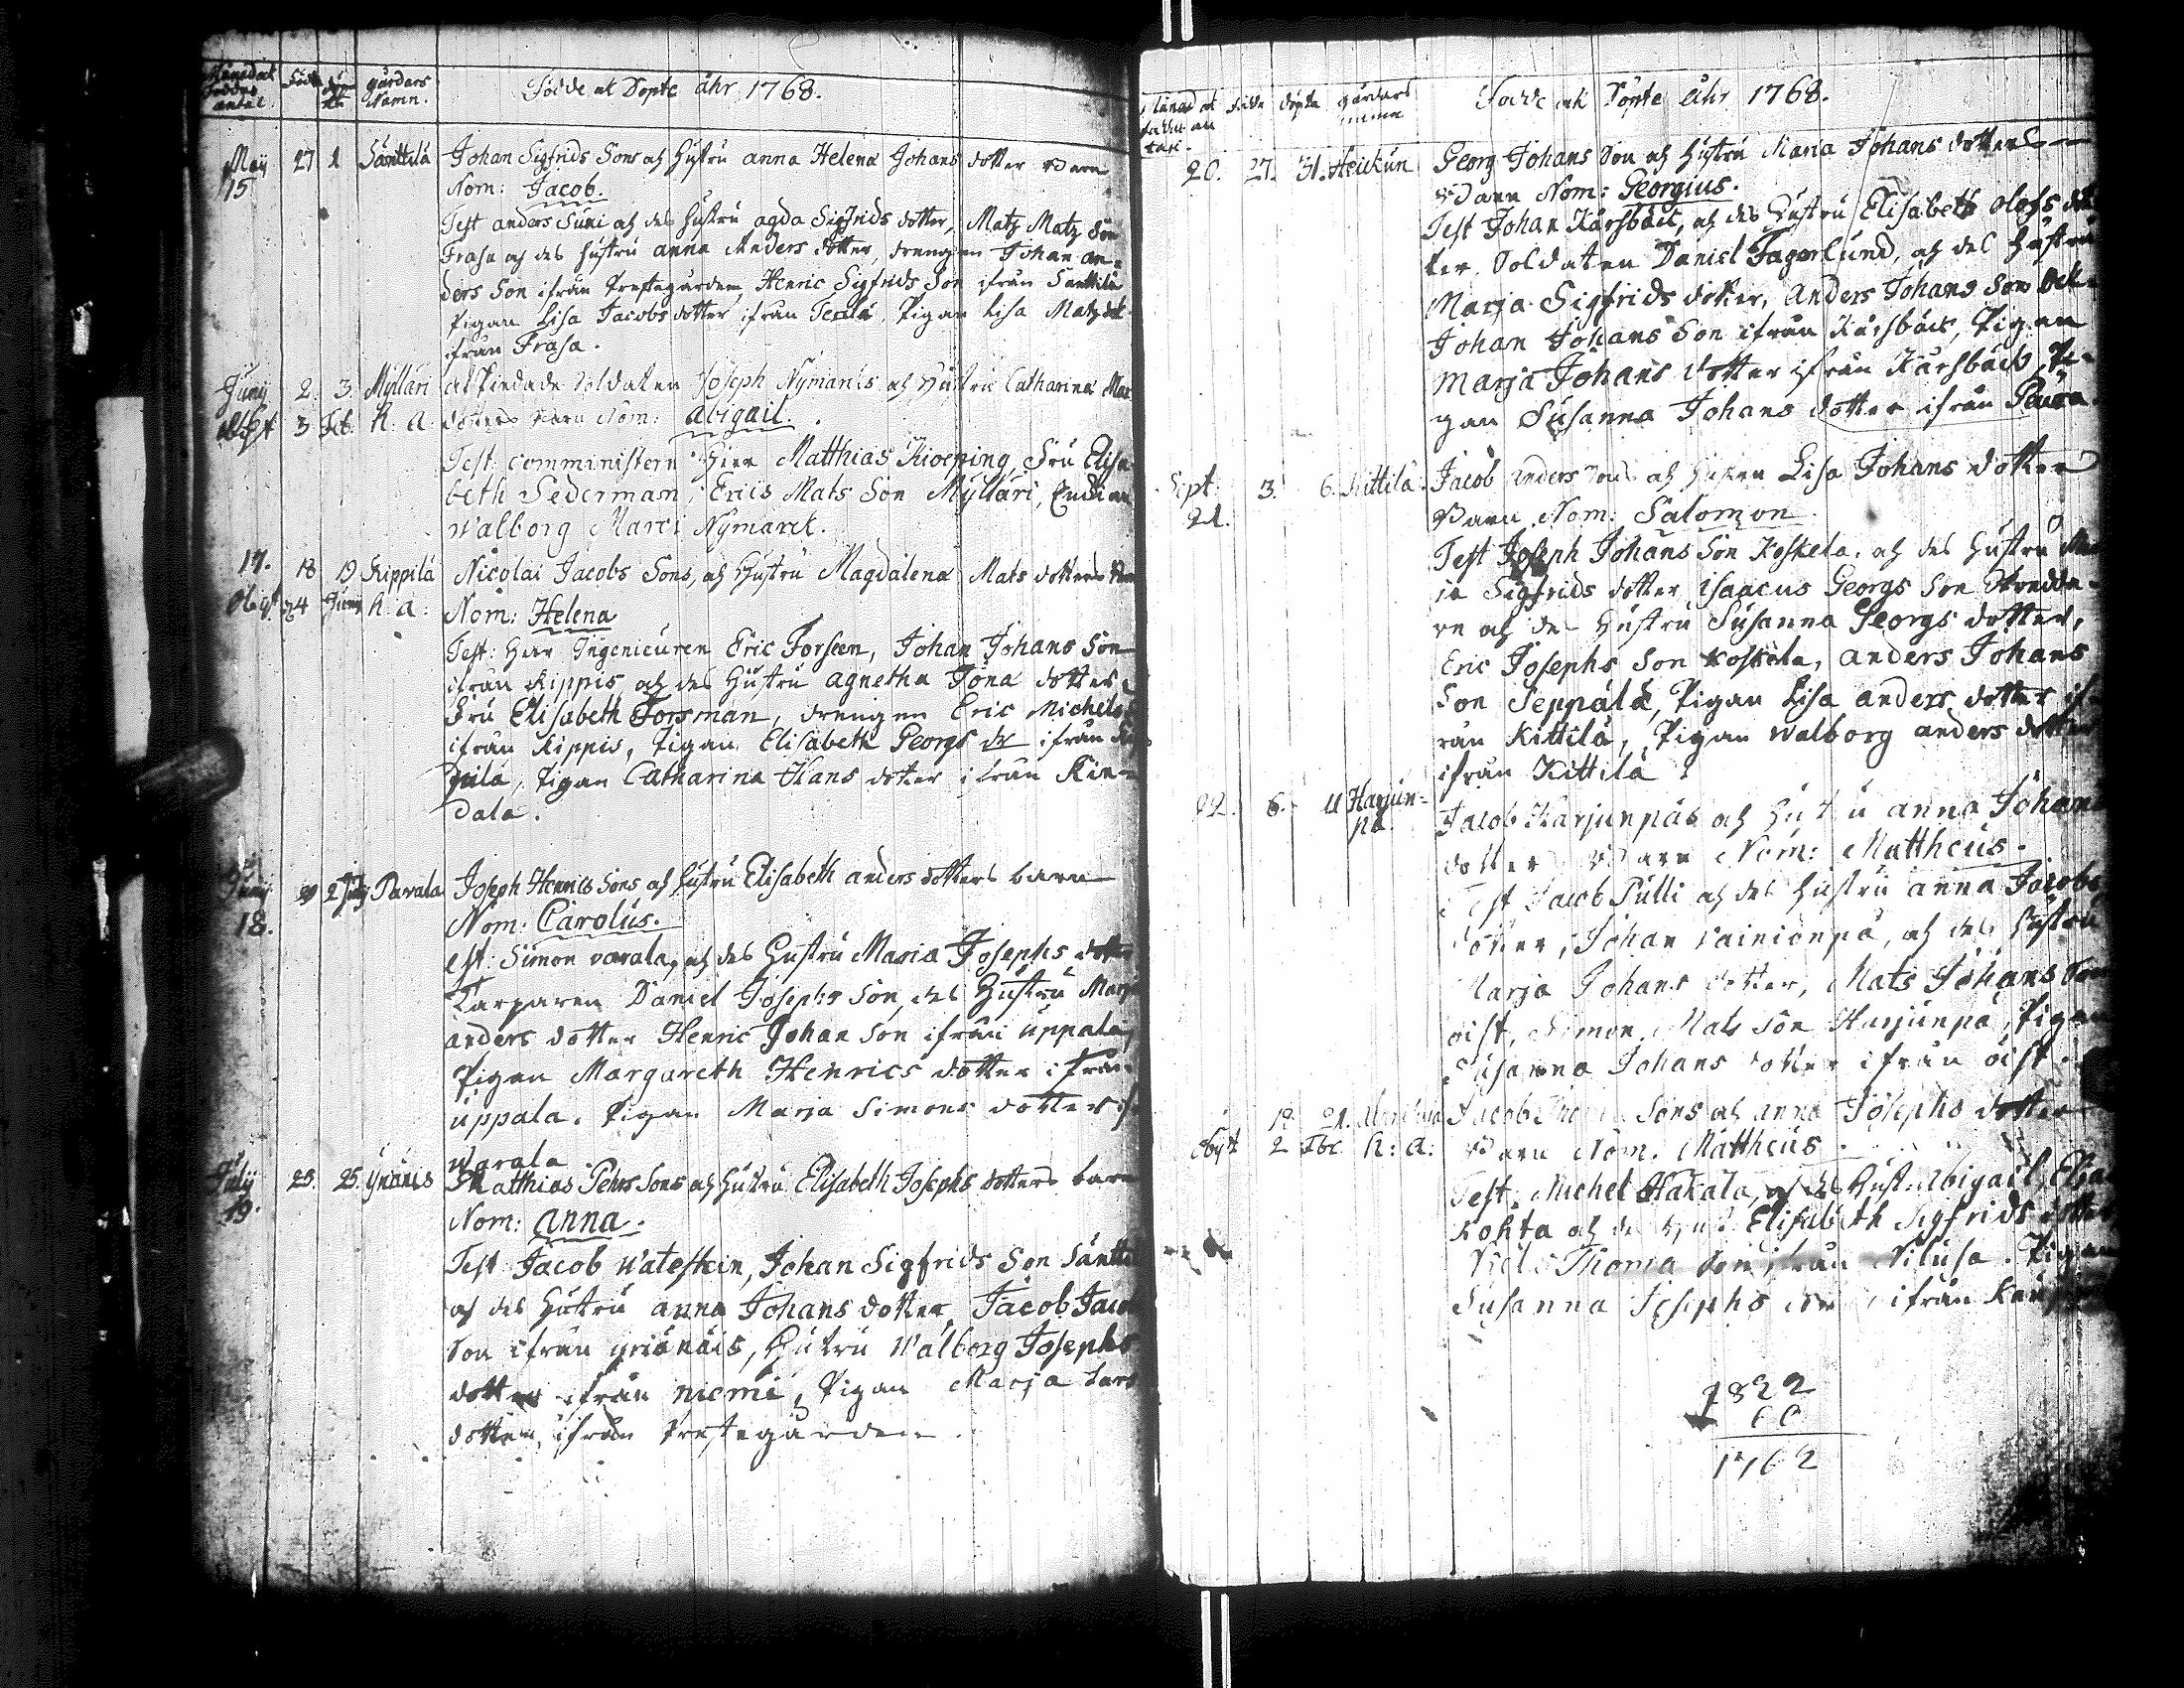 Månad ock födde antal. Född döpt gårdars Namn. Födde ok Döpte åhr 1768.
May 27 1 Santtila Johan Sigfrids Sons och Hustru anna Helena Johans dotter Barn
15 Nom: Jacob.
Test anders Suni och des Hustru agda Sigfrids dotter, Matz Matz Son
Frasa och des Hustru anna Anders dotter, drengen Johan an=
ders Son ifrån Prestegården Henric Sigfrids Son ifrån Santtila
Pigan Lisa Jacobs dotter ifrån Terälä, Pigan Lisa Matz dot
ifrån Frasa.
Juny 2. 3. Myllari afskedade Soldaten Joseph Nymarks och Hustru Catharina Mar
obiit 3 Feb. R. a. dotters barn Nom: abigail.
Test. comministern Herr Matthias Kioeping, Fru Elisa
beth Sederman, Erics Mats Son Myllari, Enkian
Walborg Marci Nymarck.
17. 18 19 Kippila Nicolai Jacobs Sons, och Hustru Magdalena Mats dotters
Obijt 24 Juny R. a. Nom: Helena
Test: Herr Ingenieuren Eric Forseen, Johan Johans Son
ifrån Kippis, och des Hustru agnetha Jona dotter,
Fru Elisabeth Forsman, drengen Eric Michels
ifrån Kippis, Pigan Elisabeth Georgs dr ifrån Kip
pila, Pigan Catharina Hans dotter ifrån Kin=
dala.
Juny 2 July Pavala Joseph Henrics Sons och Hustru Elisabeth anders dotters barn
18. Nom: Carolus.
est: Simon varala, och des Hustru Maria Josephs dotter
Torparen Daniel Josephs Son, des Hustru Marj
anders dotter Henric Johan Son ifrån uppala,
Pigan Margareth Henrics dotter ifrån
uppala. Pigan Marja Simons dotter if
warala
July 25. 25. Matthias Pehrs Sons och Hustru Elisabeth Josephs dotters barn
19. Nom: anna.
Test Jacob Watestein, Johan Sigfrids Son Santti
och des Hustru anna Johans dotter, Jacob Jacob
Son ifrån yriänäis, Hustru Walborg Josephs
dotter ifrån niemi, Pigan Marja Lars
dotter, ifrån Prestegården.
Månad ok födde an tahl. födde döpte gårdars namn Födde ok Döpte åhr 1768.
20. 27. 31. Heickun Georg Johans Son och Hustru Maria Johans dotters
Barn Nom: Georgius.
Test Johan Kårsbäck, och des Hustru Elisabeth Olofs dot
ter. Soldaten Daniel Fagerlund, och des Hustru
Marja Sigfrids dotter, Anders Johans Son ock
Johan Johans Son ifrån Kårsbäck, Pigan
Marja Johans dotter ifrån Kårsbäck, Pi=
gan Susanna Johans dotter ifrån Paura
Sept 3. 6. Kittila Jacob anders Sons och Hustru Lisa Johans dotter
21. Barn Nom: Salomon.
Test Joseph Johans Son Koskela, och des Hustru Ma
ia Sigfrids dotter Isaacus Georgs Son
re och des Hustru Susanna Georgs dotter,
Eric Josephs Son Koskela, anders Johans
Son Seppälä, Pigan Lisa anders dotter if
rån Kittilä, Pigan Walborg anders dotter
ifrån Kittilä
22. 8. 11 Harjun=pä. Jacob Harjunpäs och Hustru anna Johans
dotter Barn Nom: Mattheus.
Test Jacob Pulli och des Hustru anna Jacobs
dotter, Johan Vainionpä, och des Hustru
Marja Johans dotter, Mats Johans Son
oist, Simon Mats Son Harjunpä, Pigan
Susanna Johans dotter ifrån oist.
19. 21. Jacob Sons och anna Josephs dotter
obijt 2 Xbr. R: a: Barn Nom. Mattheus
Test: Michel Hakala, och des Hust. Abigail, Elia
Kohta och des Hust. Elisabeth Sigfrids dotter
Thoma Son ifrån Nilusa. Pigan
Susanna Josephs dr ifrån
1822
60
1762